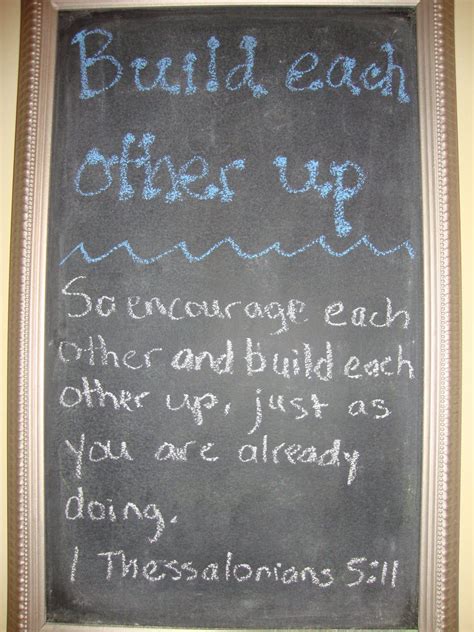 Build each
other up
So encourage each
other and build each
other up, just as
you are already
doing.
1 Thessalonians 5:11